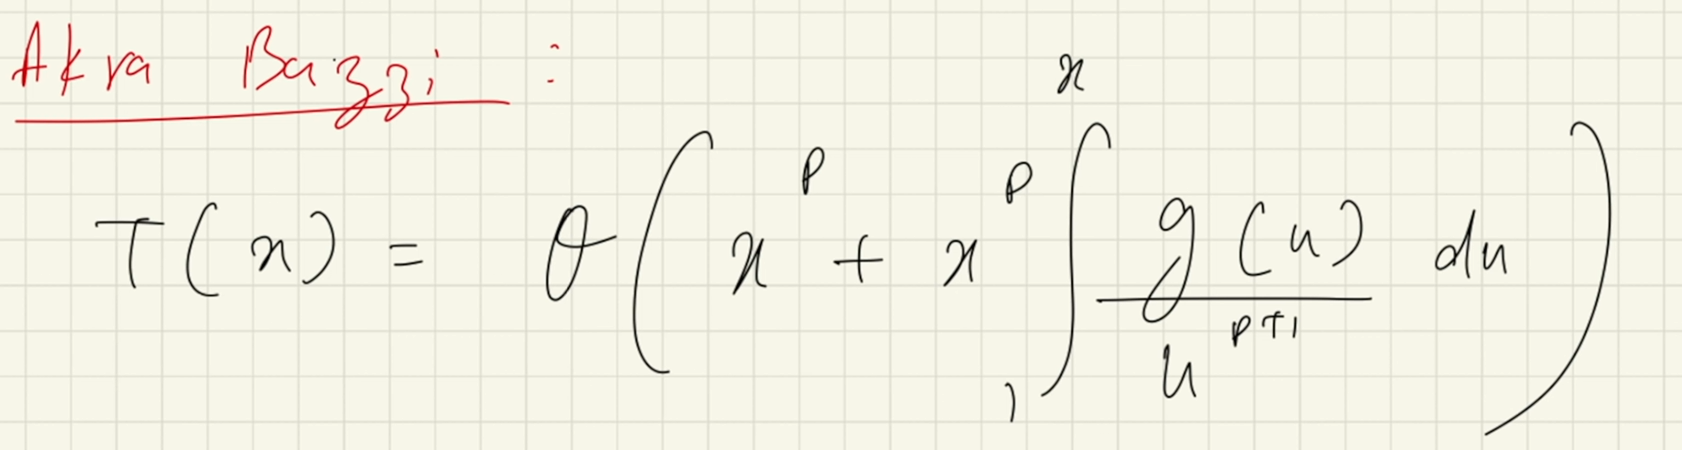 Akra Bazzi :
T(x) = θ( x^p + x^p ∫_1^x g(u)/u^{p+1} du )